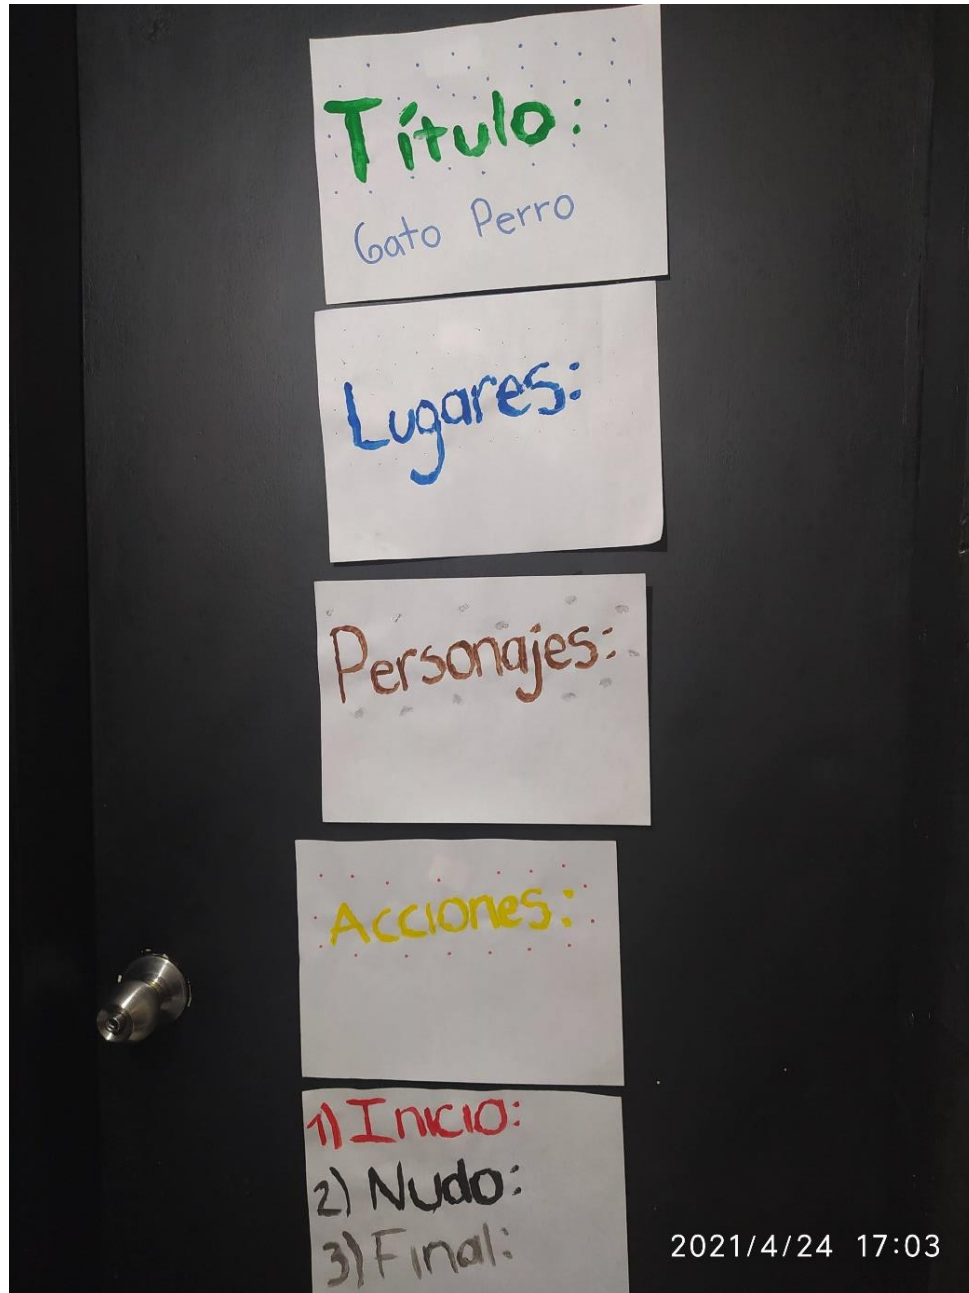 Título:
Gato Perro
Lugares:
Personajes:
Acciones:
1) Inicio:
2) Nudo:
3) Final:
2021/4/24 17:03